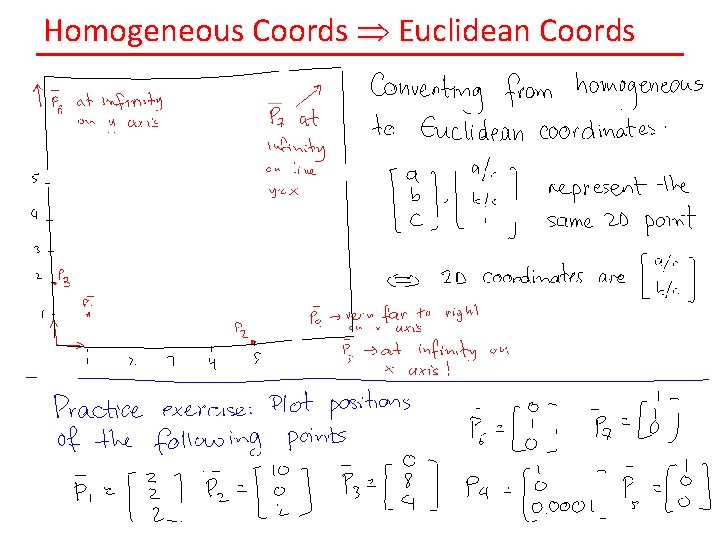 Homogeneous Coords ⇒ Euclidean Coords
P̄6 at infinity
on y axis
P̄7 at
infinity
on line
y=x
Converting from homogeneous
to Euclidean coordinates.
[a b c], [a/c b/c 1] represent the
same 2D point
⇔ 2D coordinates are [a/c b/c]
5
4
3
2 P̄3
1 P̄1
P̄2
1 2 3 4 5
P̄4 → very far to right
on x axis
P̄5 → at infinity on
x axis!
Practice exercise: Plot positions
of the following points
P̄6 = [0 1 0] P̄7 = [1 1 0]
P̄1 = [2 2 2] P̄2 = [10 0 2] P̄3 = [0 8 4] P4 = [1 0 0.0001] P̄5 = [1 0 0]